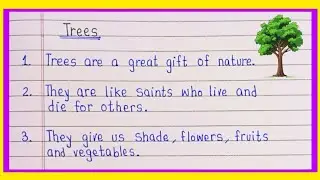 Trees
1. Trees are a great gift of nature.
2. They are like saints who live and
die for others.
3. They give us shade, flowers, fruits
and vegetables.